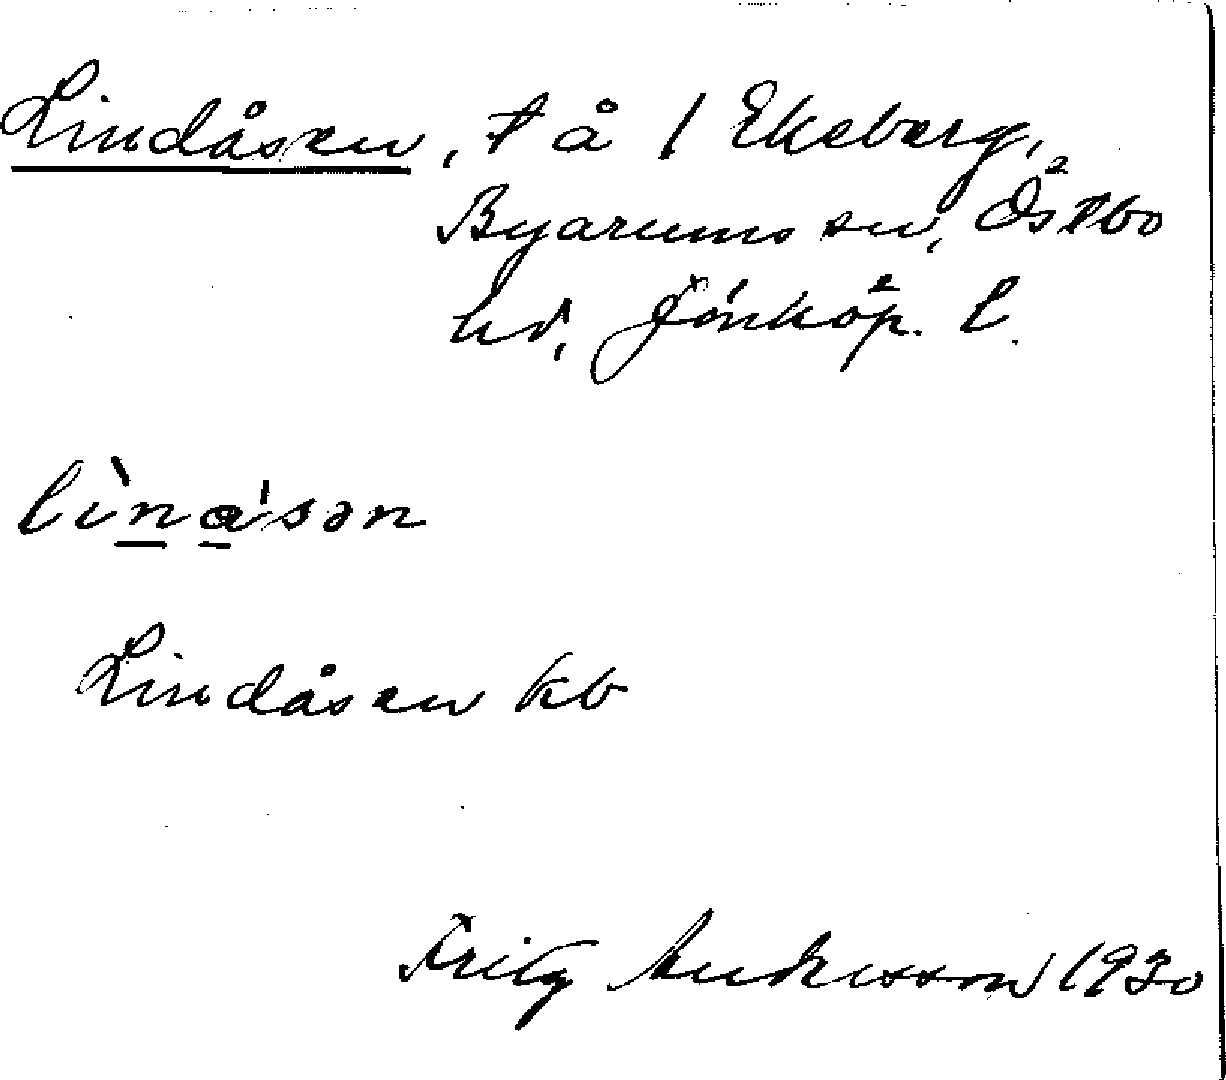 Lindåsen, t å 1 Ekeberg,
Byarums sn, Östbo
hd, Jönköp. l.
lìna̍sən
Lindåsen kb
Fritz Andersson 1930